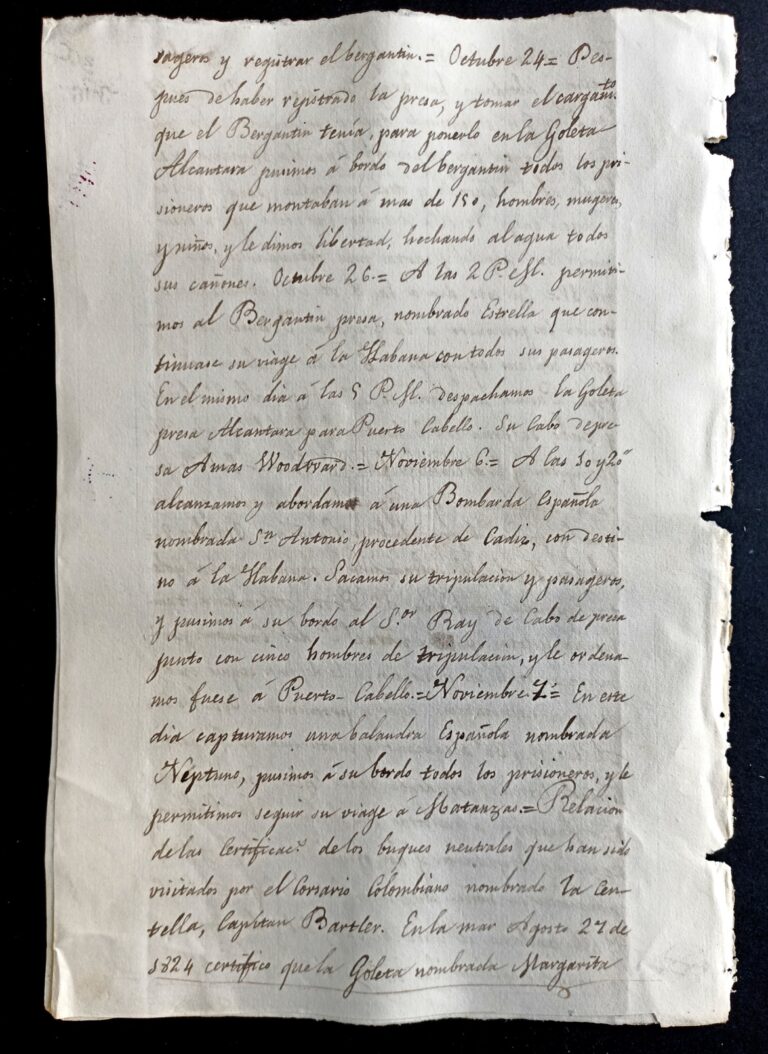 sageros y registrar el bergantin.= Octubre 24= Des-
pues de haber rejistrado la presa, y tomar el cargamto.
que el Bergantin tenía, para ponerlo en la Goleta
Alcantara pusimos á bordo del bergantin todos los pri-
sioneros que montaban á mas de 150, hombres, mugeres,
y niños, y le dimos libertad, hechando al agua todos
sus cañones. Octubre 26.= A las 2 P.M. permiti-
mos al Bergantin presa, nombrado Estrella que con-
tinuase su viage á la Habana con todos sus pasageros.
En el mismo dia á las 5 P.M. despachamos la Goleta
presa Alcantara para Puerto Cabello. Su Cabo de pre-
sa Amas Woodward.= Noviembre 6.= A las 10 y 20"
alcanzamos y abordamos á una Bombarda Española
nombrada Sn. Antonio, procedente de Cadiz, con desti-
no á la Habana. Sacamos su tripulacion y pasageros,
y pusimos á su bordo al S.or Ray de Cabo de presa
junto con cinco hombres de tripulacion, y le ordena-
mos fuese á Puerto-Cabello.= Noviembre 7.= En este
dia capturamos una balandra Española nombrada
Neptuno, pusimos á su bordo todos los prisioneros, y le
permitimos seguir su viage á Matanzas.= Relacion
de las Certificac.s de los buques neutrales que han sido
visitados por el Corsario Colombiano nombrado la Cen-
tella, Capitan Bartler. En la mar Agosto 27 de
1824 certifico que la Goleta nombrada Margarita